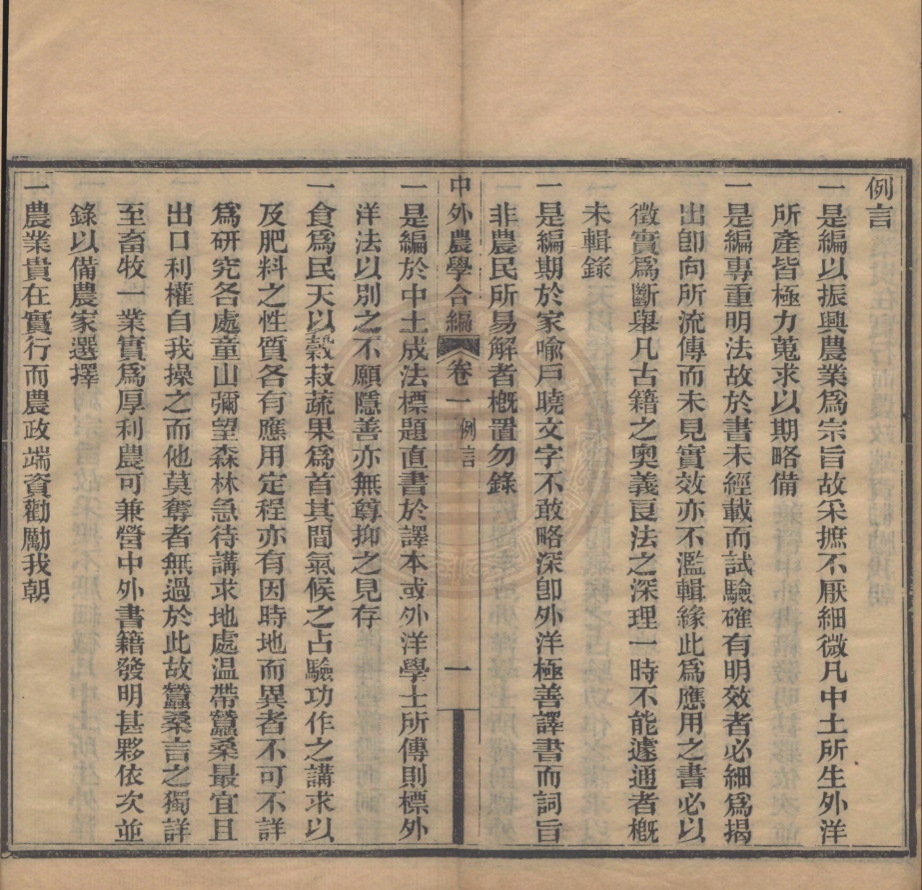 例言
一是編以振興農業爲宗旨故采摭不厭細微凡中土所生外洋
所產皆極力蒐求以期略備
一是編專重明法故於書未經載而試驗確有明效者必細爲揭
出卽向所流傳而未見實效亦不濫輯緣此爲應用之書必以
徵實爲斷舉凡古籍之奧義良法之深理一時不能遽通者槪
未輯錄
一是編期於家喻戶曉文字不敢略深卽外洋極善譯書而詞旨
非農民所易解者槪置勿錄
中外農學合編 卷一 例言 一
一是編於中土成法標題直書於譯本或外洋學士所傳則標外
洋法以別之不願隱善亦無尊抑之見存
一食爲民天以穀蓏蔬果爲首其間氣候之占驗功作之講求以
及肥料之性質各有應用定程亦有因時地而異者不可不詳
爲研究各處童山彌望森林急待講求地處温帶蠶桑最宜且
出口利權自我操之而他莫奪者無過於此故蠶桑言之獨詳
至畜牧一業實爲厚利農可兼營中外書籍發明甚夥依次並
錄以備農家選擇
一農業貴在實行而農政端資勸勵我朝